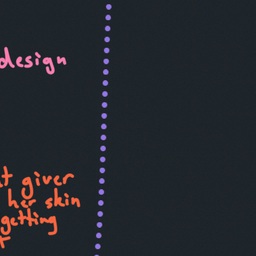 design
t giver
her skin
getting